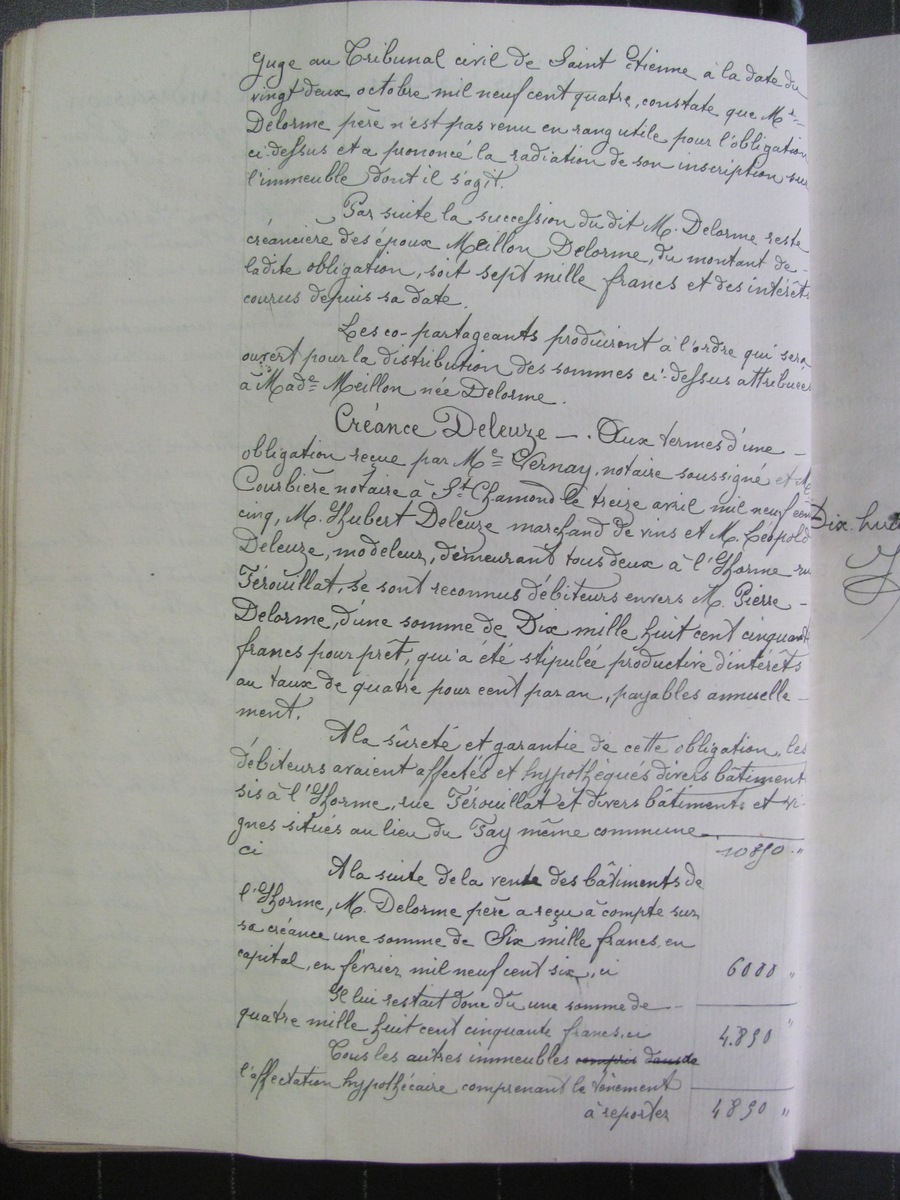 Juge au Tribunal civil de Saint Etienne à la date du
vingt deux octobre mil neuf cent quatre, constate que Mr
Delorme père n'est pas venu en rang utile pour l'obligation
ci-dessus et a prononcé la radiation de son inscription sur
l'immeuble dont il s'agit.
Par suite la succession du dit M. Delorme reste
créancière des époux Meillon Delorme, du montant de -
ladite obligation, soit sept mille francs et des intérêts
courus depuis sa date.
Les co-partageants produiront à l'ordre qui sera
ouvert pour la distribution des sommes ci-dessus attribuées
à Made Meillon née Delorme.
Créance Deleuze -. Aux termes d'une -
obligation reçue par Me Vernay, notaire soussigné et Me
Courbière notaire à St Chamond le treize avril mil neuf cent
cinq, M. Hubert Deleuze marchand de vins et M. Léopold
Deleuze, modeleur, demeurant tous deux à l'Horme rue
Férouillat, se sont reconnus débiteurs envers M. Pierre -
Delorme, d'une somme de Dix mille huit cent cinquante
francs pour prêt, qui a été stipulée productive d'intérêts
au taux de quatre pour cent par an, payables annuelle-
ment.
A la sûreté et garantie de cette obligation, les
débiteurs avaient affectés et hypothèqués divers bâtiments
sis à l'Horme, rue Férouillat et divers bâtiments et vi-
gnes situés au lieu du Fay même commune
ci 10850 "
A la suite de la vente des bâtiments de
l'Horme, M. Delorme père a reçu à compte sur
sa créance une somme de Six mille francs en
capital, en février mil neuf cent six, ci 6000 "
Il lui restait donc dû une somme de -
quatre mille huit cent cinquante francs, ci 4.850 "
Tous les autres immeubles compris dans de
l'affectation hypothécaire comprenant le tènement
à reporter 4850 "
Dix. hui